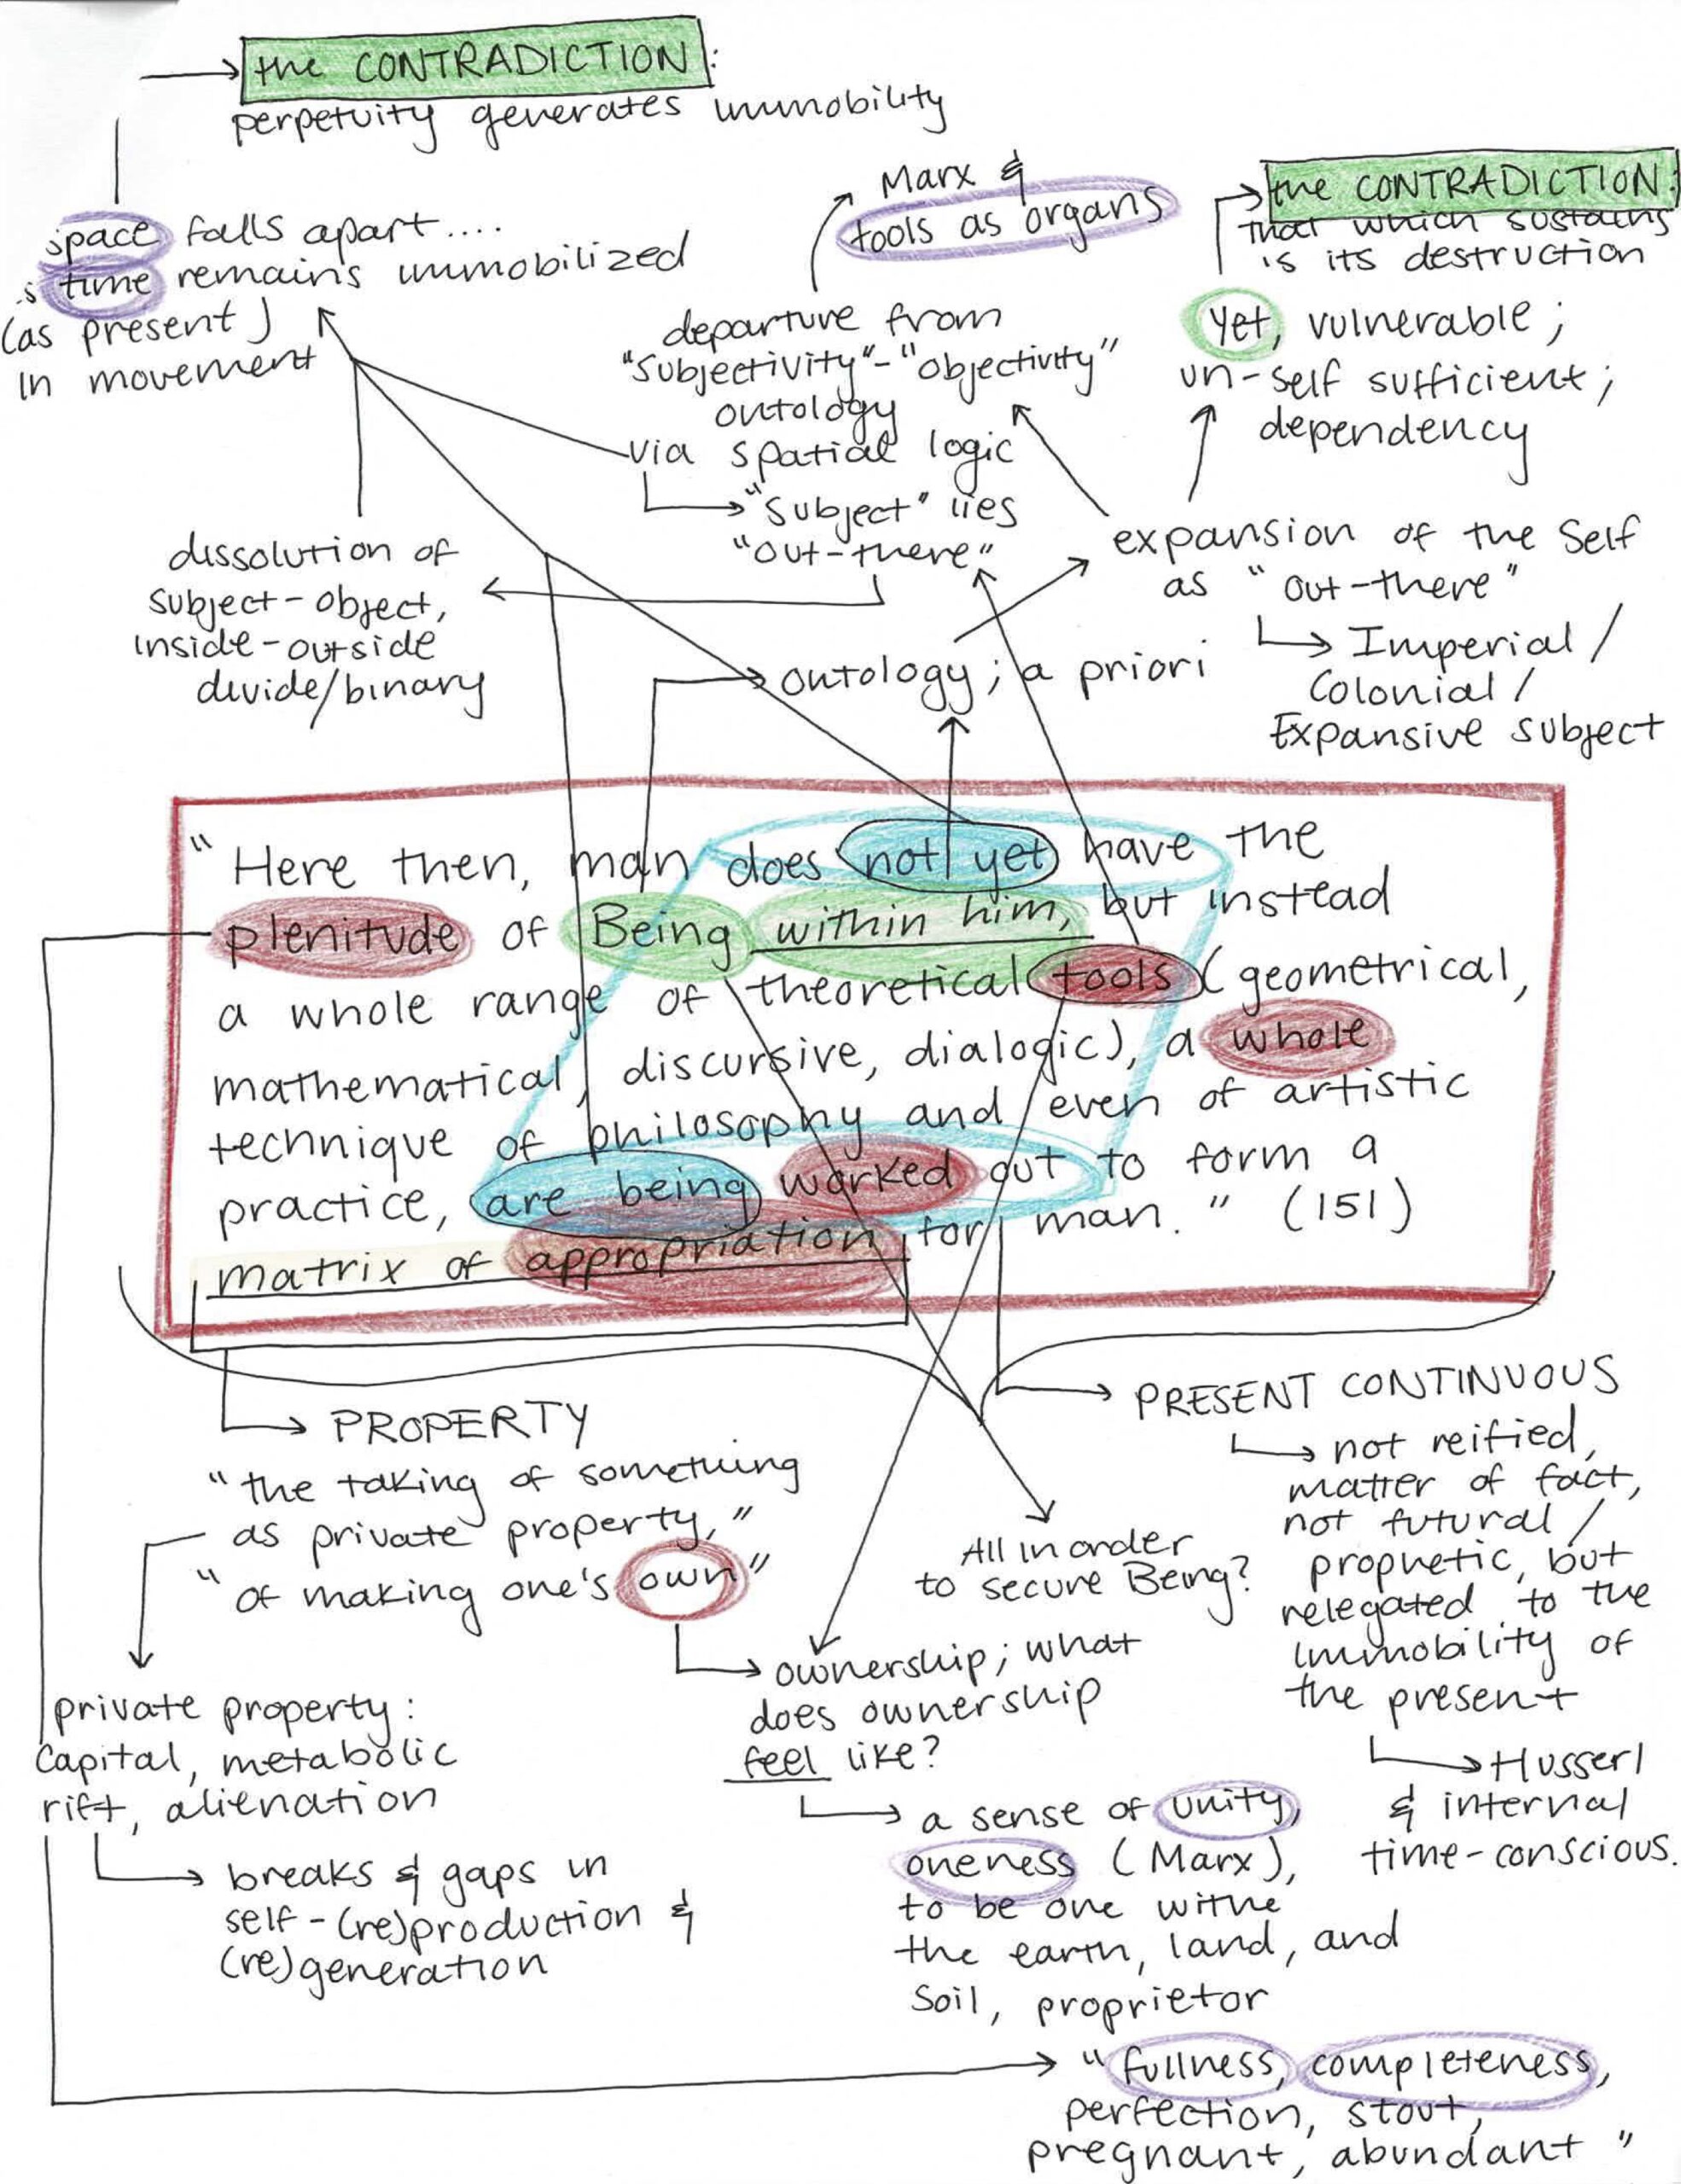 the CONTRADICTION:
perpetuity generates immobility
space falls apart....
is time remains immobilized
(as present)
in movement
Marx &
tools as organs
the CONTRADICTION:
that which sustains
is its destruction
yet, vulnerable;
un-self sufficient;
dependency
departure from
"subjectivity"-"objectivity"
ontology
via spatial logic
"subject" lies
"out-there"
expansion of the Self
as "out-there"
Imperial/
Colonial/
Expansive subject
dissolution of
subject-object,
inside-outside
divide/binary
ontology; a priori
"Here then, man does not yet have the
plenitude of Being within him, but instead
a whole range of theoretical tools (geometrical,
mathematical, discursive, dialogic), a whole
technique of philosophy and even of artistic
practice, are being worked out to form a
matrix of appropriation for man." (151)
PROPERTY
"the taking of something
as private property,"
"of making one's own"
private property:
Capital, metabolic
rift, alienation
breaks & gaps in
self-(re)production &
(re)generation
All in order
to secure Being?
ownership; what
does ownership
feel like?
a sense of unity,
oneness (Marx),
to be one withe
the earth, land, and
soil, proprietor
PRESENT CONTINUOUS
not reified,
matter of fact,
not futural/
prophetic, but
relegated to the
immobility of
the present
Husserl
& internal
time-conscious.
"fullness, completeness,
perfection, stout,
pregnant, abundant"